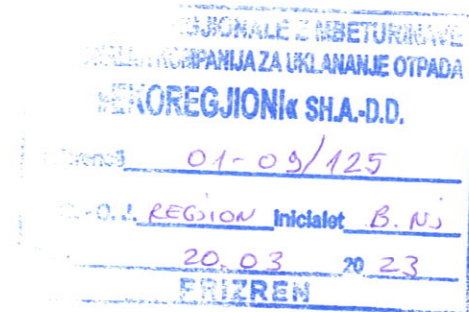 MBETURINAVE
KOMPANIJA ZA UKLANANJE OTPADA
»EKOREGJIONI« SH.A.-D.D.
01-09/125
O. J. REGJION Inicialet B. Nj
20.03 20 23
PRIZREN